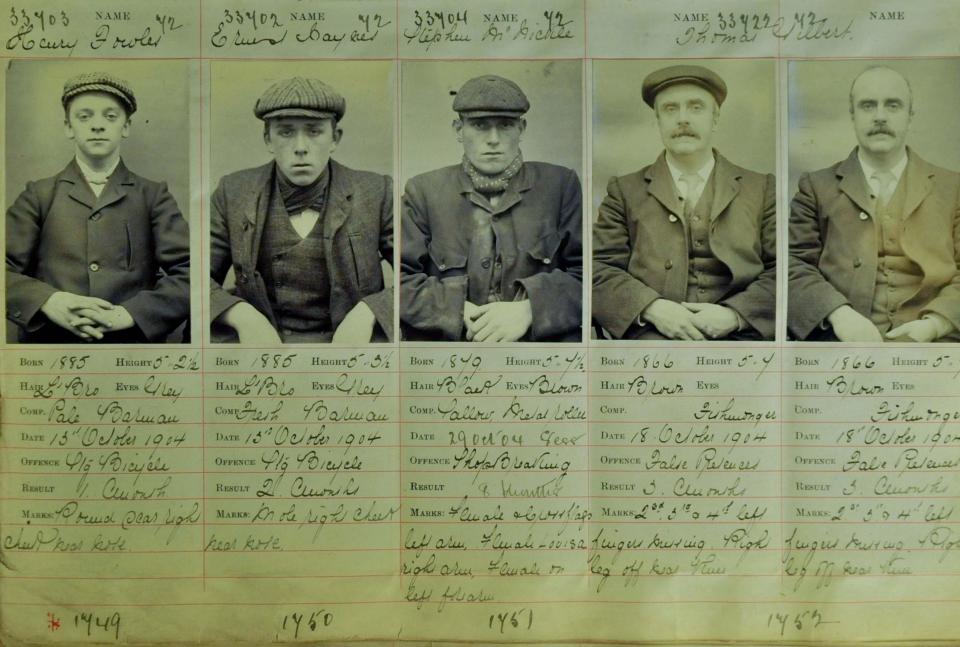 33703 NAME 72
Henry Fowler
33702 NAME 72
Ernest Haynes
33704 NAME 72
Stephen McNickle
NAME 33722 72
Thomas Wilbert.
NAME
BORN 1885 HEIGHT 5-2½
HAIR L' Bro EYES Grey
COMP. Pale Barman
DATE 13th October 1904
OFFENCE Stg Bicycle
RESULT 1. Cmonth
MARKS: Round scar right
cheek near nose.
1749
BORN 1885 HEIGHT 5-3½
HAIR L' Bro EYES Grey
COMP. Fresh Barman
DATE 13th October 1904
OFFENCE Stg Bicycle
RESULT 2. Cmonths
MARKS: Mole right cheek
near nose.
1750
BORN 1879 HEIGHT 5-7½
HAIR Black EYES Brown
COMP. Sallow Metal roller
DATE 29 Oct 04
OFFENCE Shop Breaking
RESULT 8 Months
MARKS: Female & Cross flags
left arm, Female Louisa
right arm, Female on
left f'arm
1751
BORN 1866 HEIGHT 5-7
HAIR Brown EYES
COMP. Fishmonger
DATE 18 October 1904
OFFENCE False Pretences
RESULT 3. Cmonths
MARKS: 2nd 3rd & 4th left
fingers missing. Right
leg off near knee
1752
BORN 1866 HEIGHT 5-
HAIR Brown EYES
COMP. Fishmonger
DATE 18th October 1904
OFFENCE False Pretences
RESULT 3. Cmonths
MARKS: 2nd 3rd & 4th left
fingers missing. Right
leg off near knee